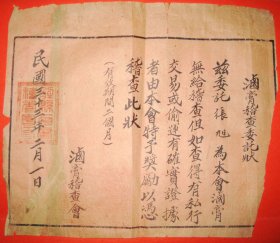 滷膏稽查委託狀
茲委託張旭為本會滷膏
無給稽查但如查得有私行
交易或偷運有確實證據
者由本會特予獎勵以憑
稽查此狀
(有效期間二個月)
滷膏稽查會
民國三十三年二月一日